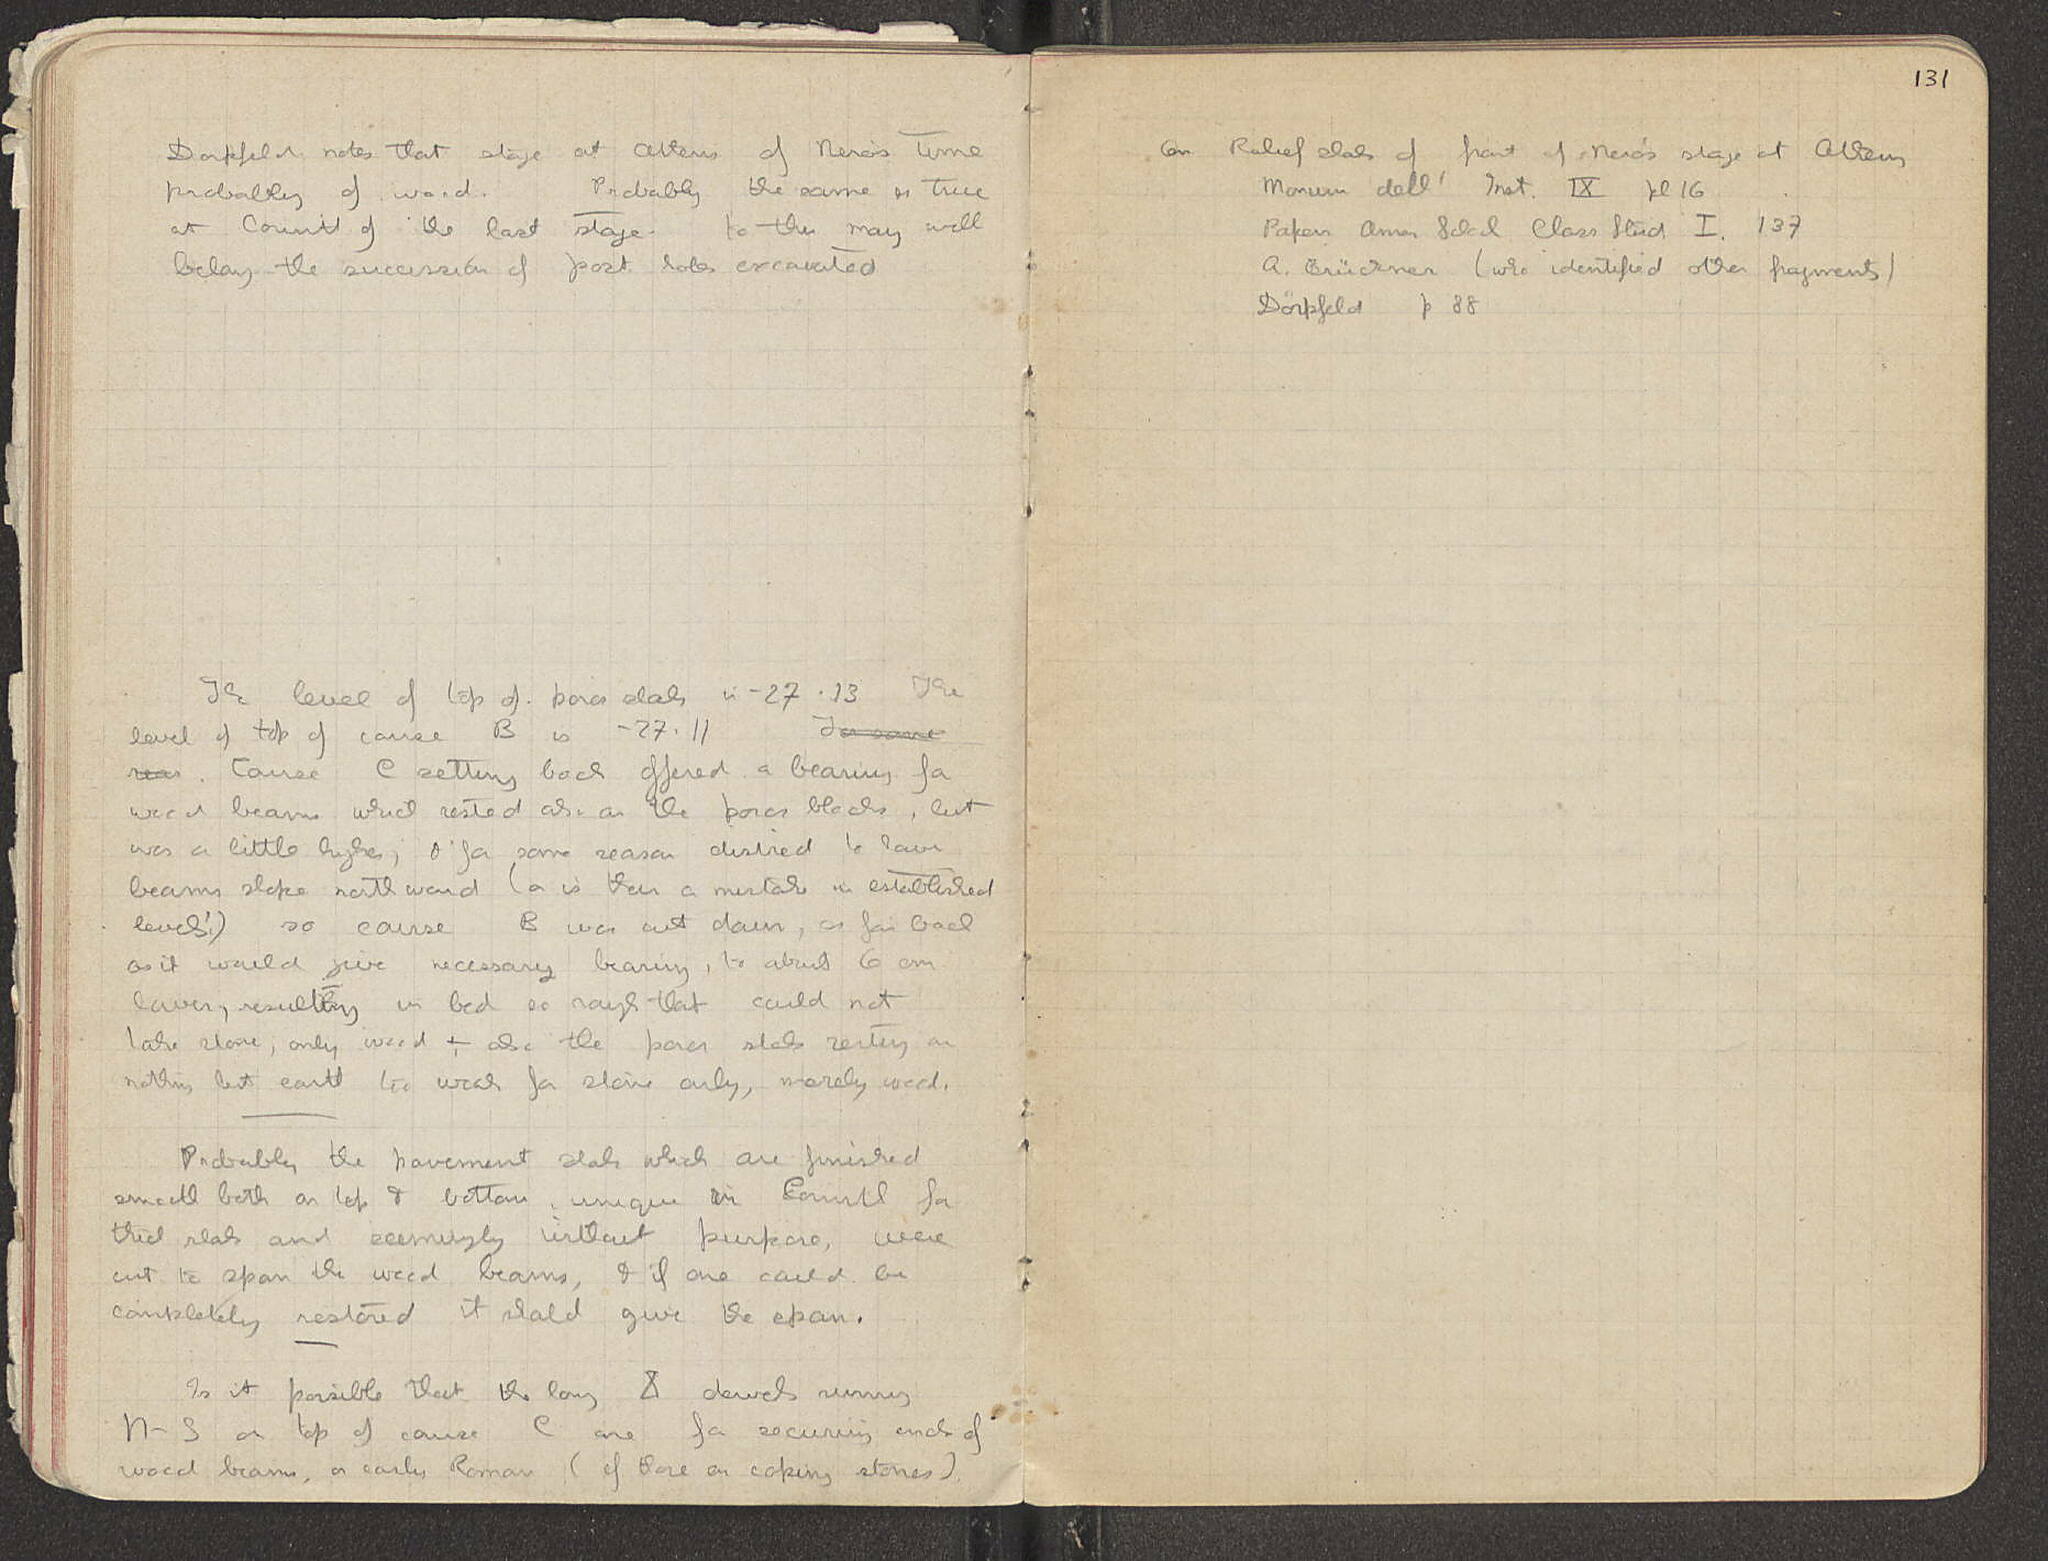 Dörpfeld notes that stage at Athens of Nero's time
probably of wood. Probably the same is true
at Corinth of the last stage. to this may well
belong the succession of post holes excavated
The level of top of poros slabs is -27.13 The
level of top of course B is -27.11 For some
reas. Course C setting back offered a bearing for
wood beams which rested also on the poros blocks, but
was a little higher, & for some reason desired to have
beams slope northward (or is there a mistake in established
levels!) so course B was cut down, as far back
as it would give necessary bearing, to about 6 cm
lower, resulting in bed so rough that could not
take stone, only wood + also the poros slabs resting on
nothing but earth too weak for stone only, merely wood.
Probably the pavement slabs which are finished
smooth both on top & bottom, unique in Corinth for
thick slabs and seemingly without purpose, were
cut to span the wood beams, & if one could be
completely restored it should give the span.
Is it possible that the long dowels running
N-S on top of course C are for securing ends of
wood beams, or early Roman (cf those on coping stones).
131
On Relief slabs of front of Nero's stage at Athens
Monum dell' Inst. IX pl 16
Papers Amer School Class Stud I. 137
A. Brückner (who identified other fragments)
Dörpfeld p 88